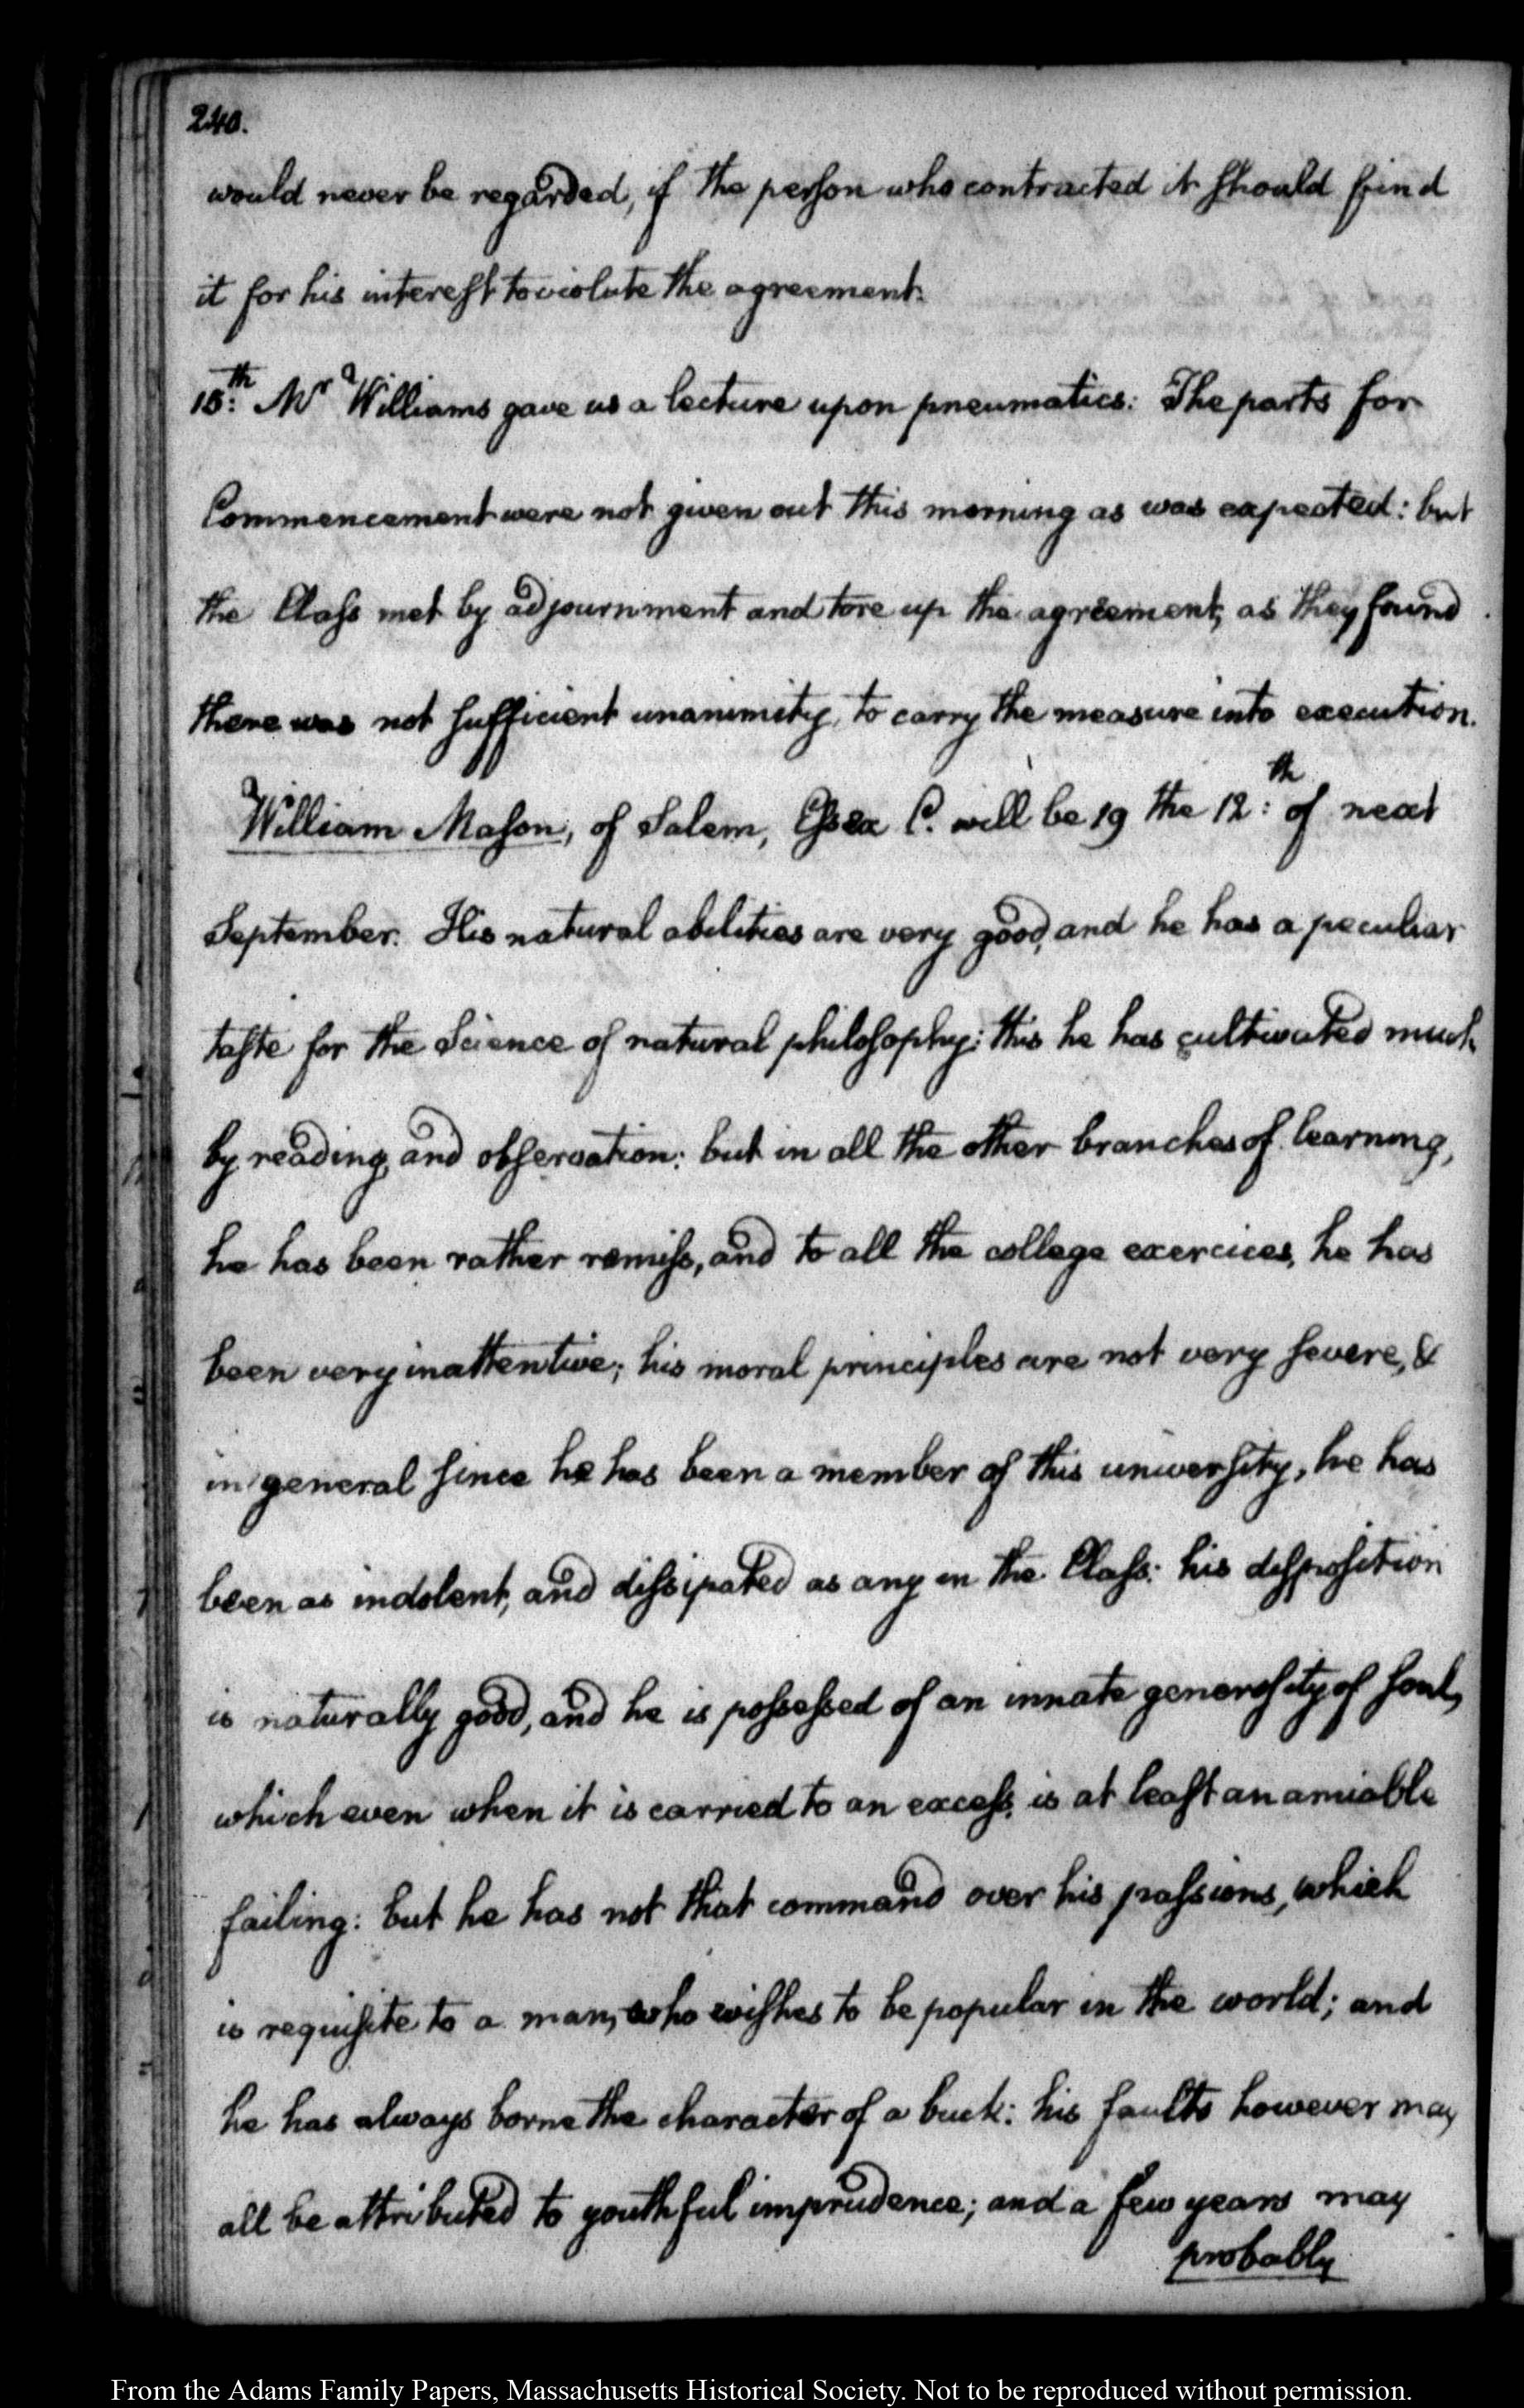 240.
would never be regarded, if the person who contracted it should find
it for his interest to violate the agreement.
15:th Mr Williams gave us a lecture upon pneumatics: The parts for
Commencement were not given out this morning as was expected: but
the Class met by adjournment and tore up the agreement, as they found
there was not sufficient unanimity, to carry the measure into execution.
William Mason, of Salem, Essex C. will be 19 the 12:th of next
September. His natural abilities are very good, and he has a peculiar
taste for the Science of natural philosophy: this he has cultivated much
by reading, and observation: but in all the other branches of learning,
he has been rather remiss, and to all the college exercices, he has
been very inattentive; his moral principles are not very severe, &
in general since he has been a member of this university, he has
been as indolent, and dissipated as any in the Class: his disposition
is naturally good, and he is possessed of an innate generosity of soul,
which even when it is carried to an excess, is at least an amiable
failing: but he has not that command over his passions, which
is requisite to a man, who wishes to be popular in the world; and
he has always borne the character of a buck: his faults however may
all be attributed to youthful imprudence; and a few years may
probably
From the Adams Family Papers, Massachusetts Historical Society. Not to be reproduced without permission.